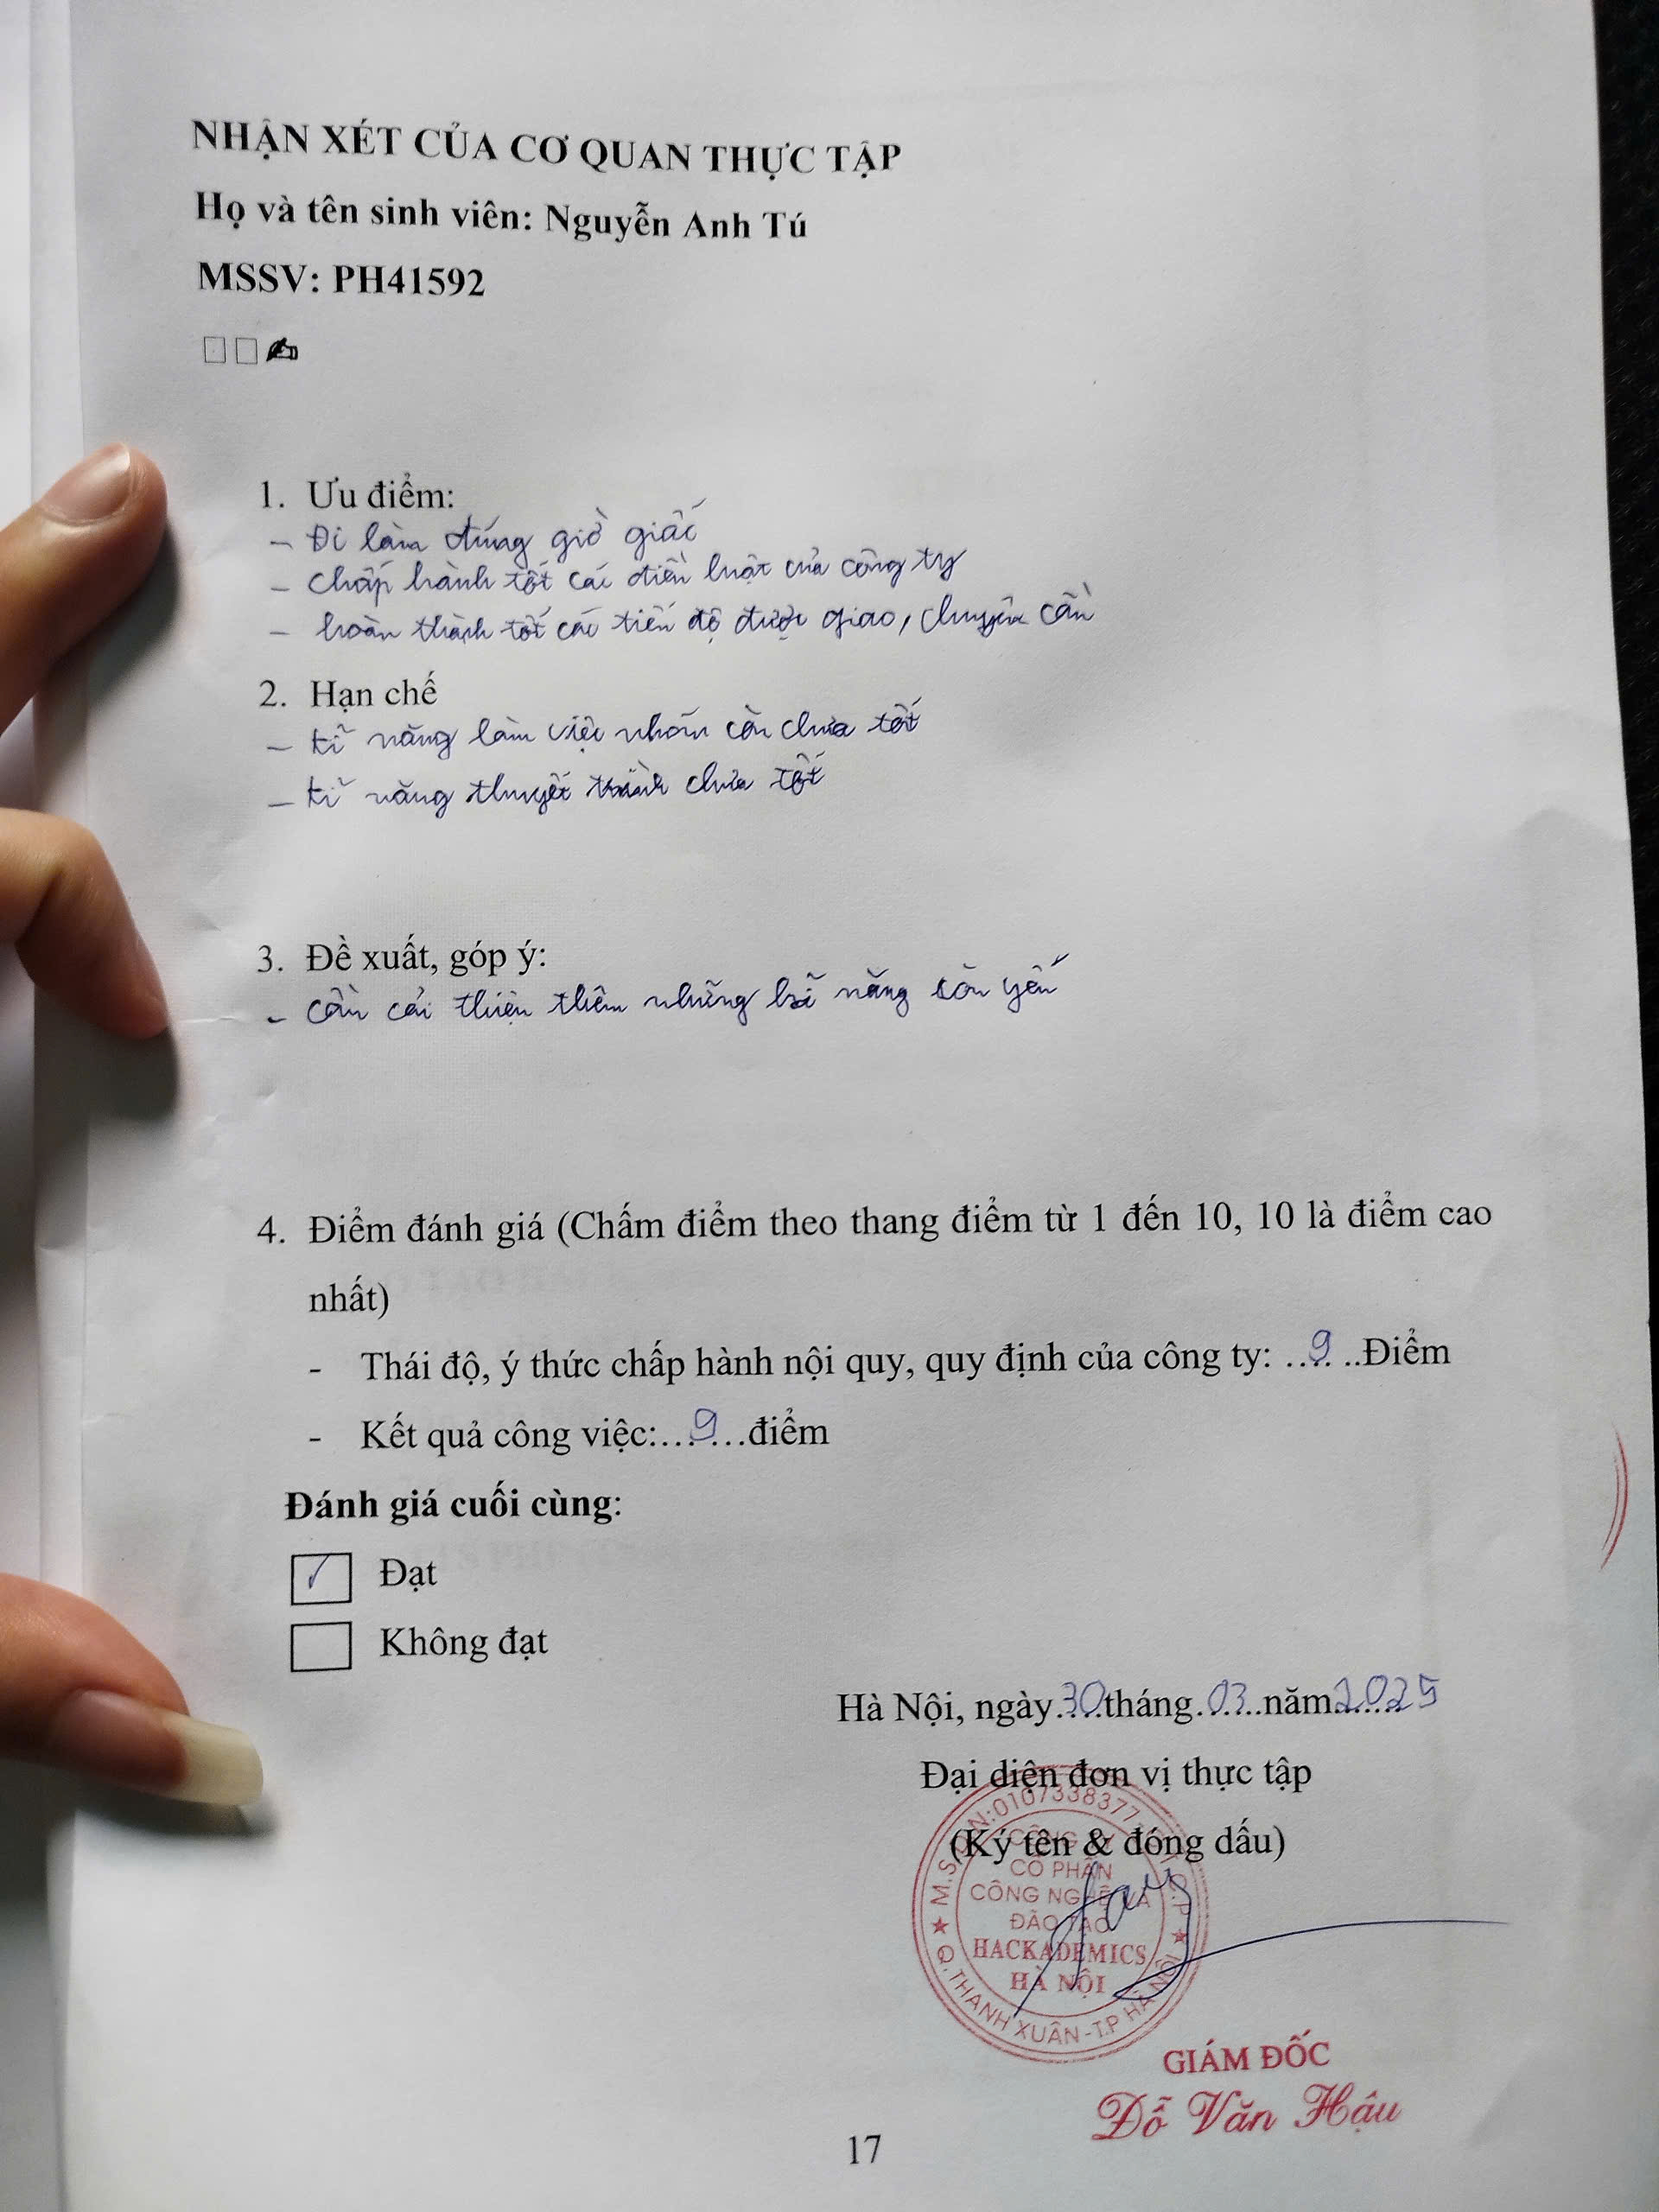 NHẬN XÉT CỦA CƠ QUAN THỰC TẬP
Họ và tên sinh viên: Nguyễn Anh Tú
MSSV: PH41592
1. Ưu điểm:
- Đi làm đúng giờ giấc
- Chấp hành tốt các điều luật của công ty
- hoàn thành tốt các tiến độ được giao, chuyên cần
2. Hạn chế
- kĩ năng làm việc nhóm còn chưa tốt
- kĩ năng thuyết trình chưa tốt
3. Đề xuất, góp ý:
- Cần cải thiện thêm những kĩ năng còn yếu
4. Điểm đánh giá (Chấm điểm theo thang điểm từ 1 đến 10, 10 là điểm cao
nhất)
- Thái độ, ý thức chấp hành nội quy, quy định của công ty: ...9...Điểm
- Kết quả công việc:...9...điểm
Đánh giá cuối cùng:
✓ Đạt
Không đạt
Hà Nội, ngày 30 tháng 03 năm 2025
Đại diện đơn vị thực tập
(Ký tên & đóng dấu)
M.S.D.N:0107338377
CÔNG TY
CỔ PHẦN
CÔNG NGHỆ VÀ
ĐÀO TẠO
HACKADEMICS
HÀ NỘI
Q.THANH XUÂN-T.P HÀ NỘI
GIÁM ĐỐC
Đỗ Văn Hậu
17